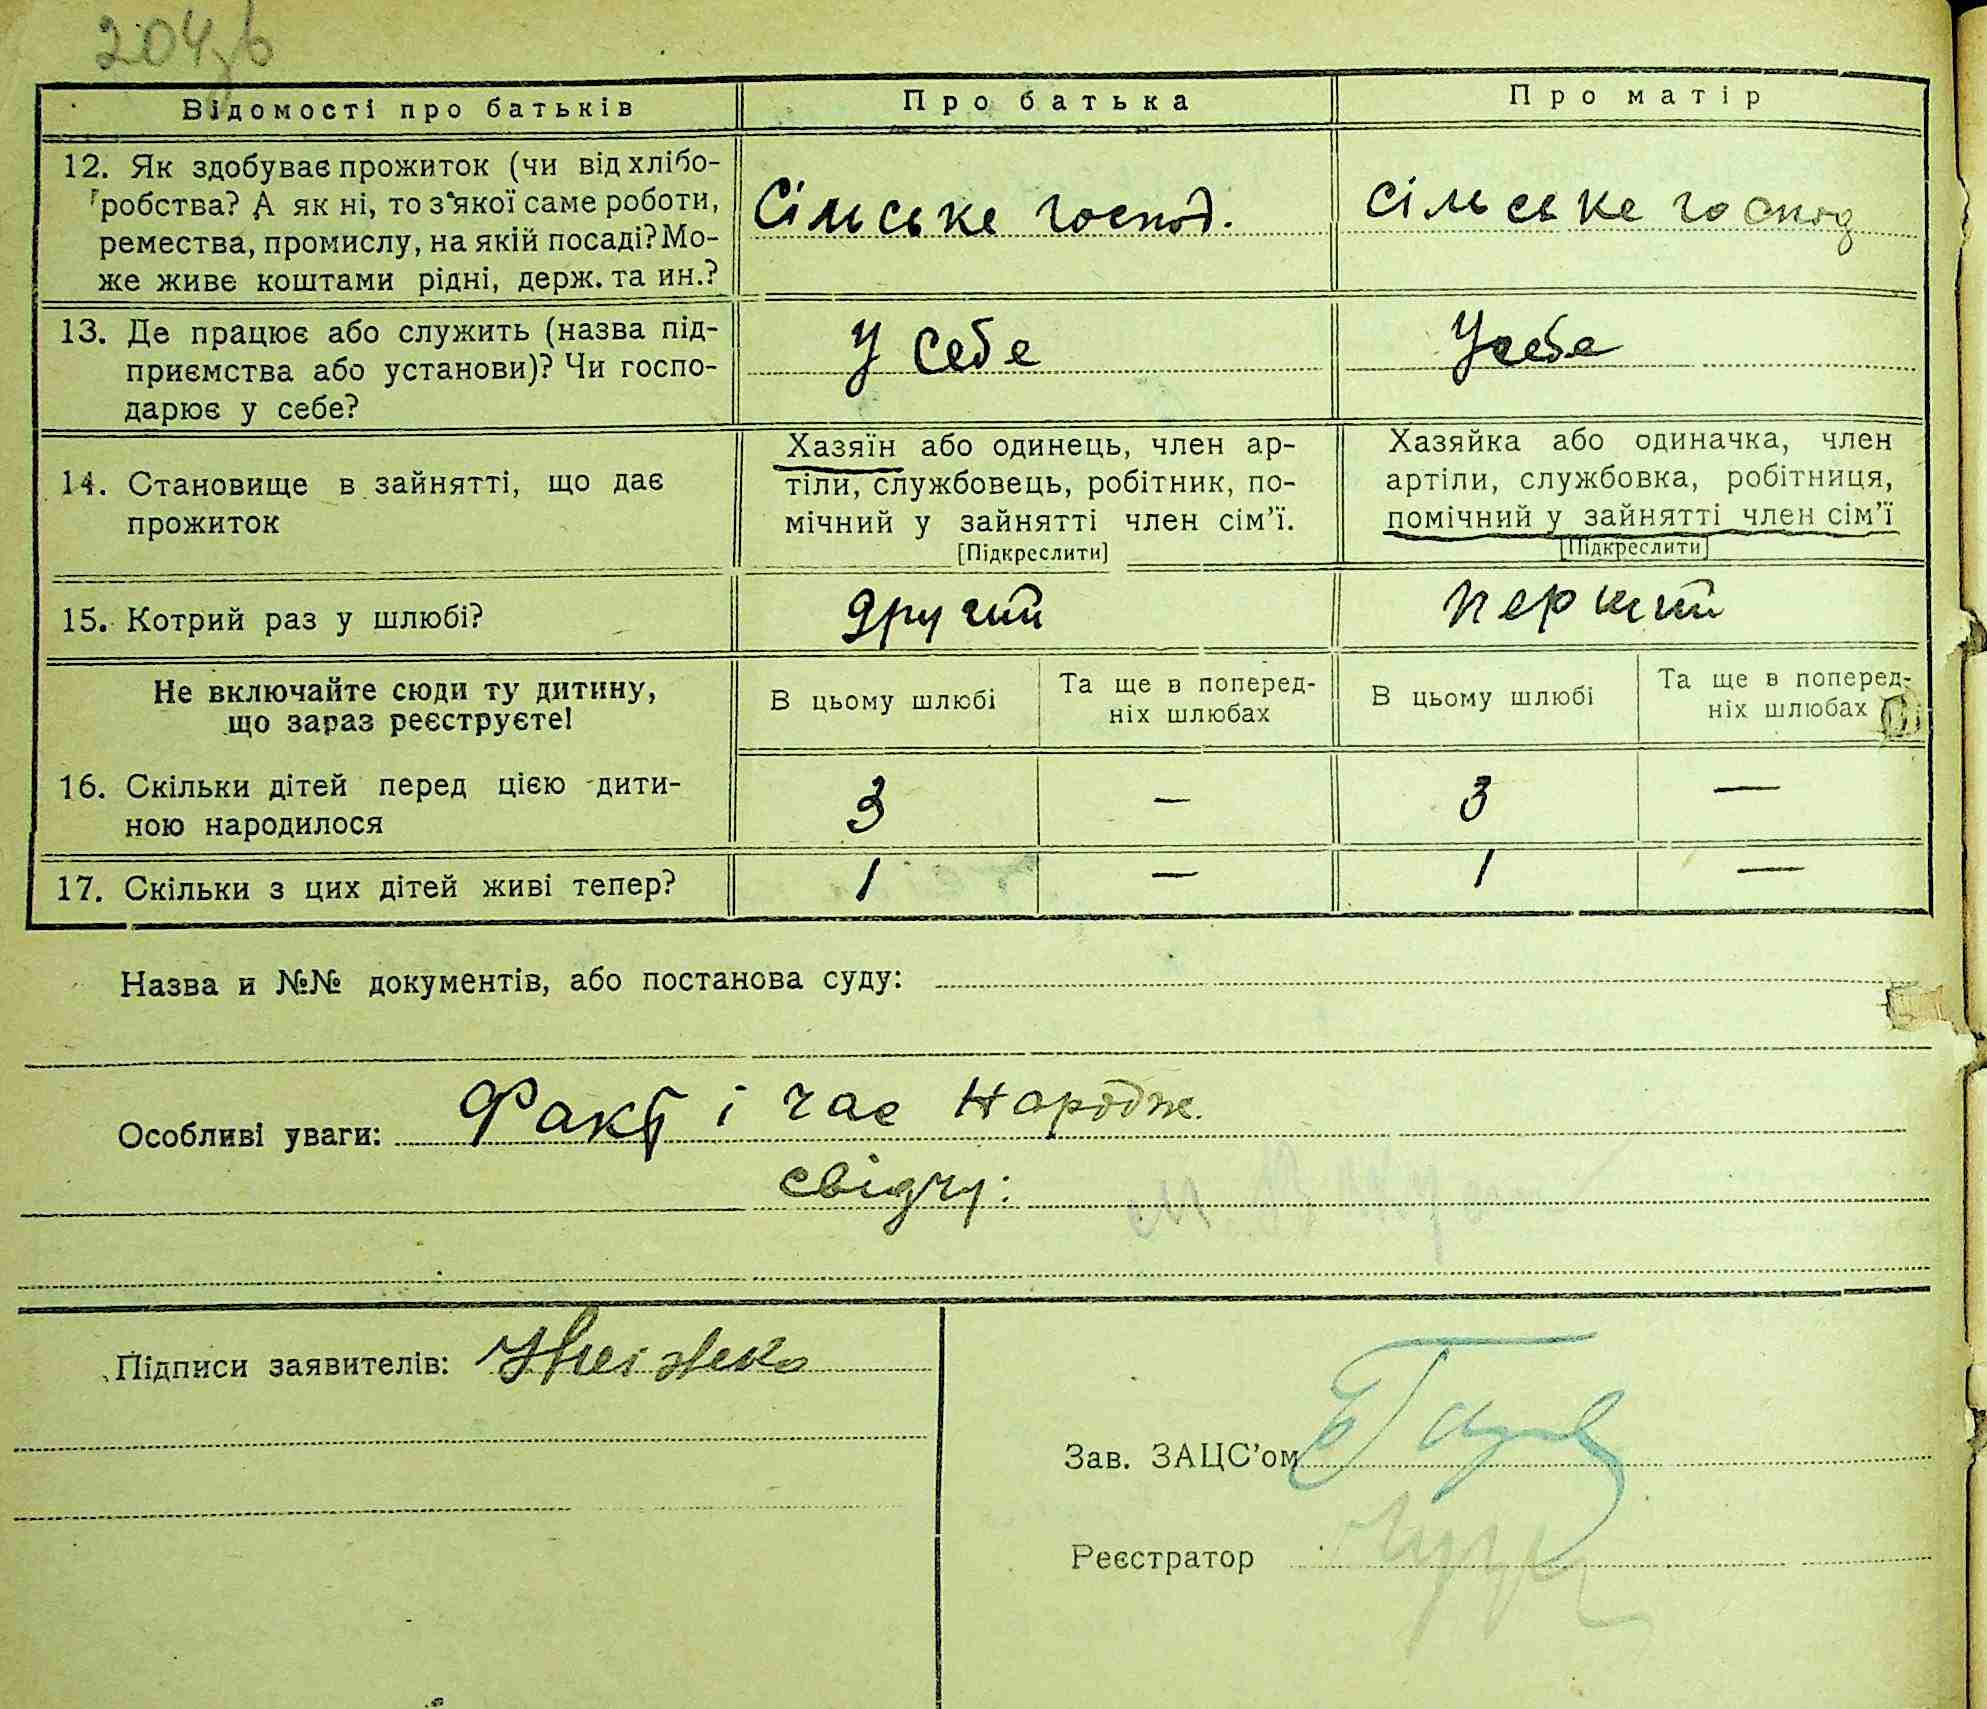 204зв
Відомості про батьків
Про батька
Про матір
12. Як здобуває прожиток (чи від хлібо-
робства? А як ні, то з якої саме роботи,
ремества, промислу, на якій посаді? Мо-
же живе коштами рідні, держ. та ин.?
Сільське господ.
сільське господ
13. Де працює або служить (назва під-
приємства або установи)? Чи госпо-
дарює у себе?
У себе
У себе
14. Становище в зайнятті, що дає
прожиток
Хазяїн або одинець, член ар-
тіли, службовець, робітник, по-
мічний у зайнятті член сім’ї.
[Підкреслити]
Хазяйка або одиначка, член
артіли, службовка, робітниця,
помічний у зайнятті член сім’ї
[Підкреслити]
15. Котрий раз у шлюбі?
другий
перший
Не включайте сюди ту дитину,
що зараз реєструєте!
В цьому шлюбі
Та ще в поперед-
ніх шлюбах
В цьому шлюбі
Та ще в поперед-
ніх шлюбах
16. Скільки дітей перед цією дити-
ною народилося
3
—
3
—
17. Скільки з цих дітей живі тепер?
1
—
1
—
Назва и №№ документів, або постанова суду:
Особливі уваги: Факт і час народж.
свідчу:
Підписи заявителів:
Зав. ЗАЦС’ом
Реєстратор